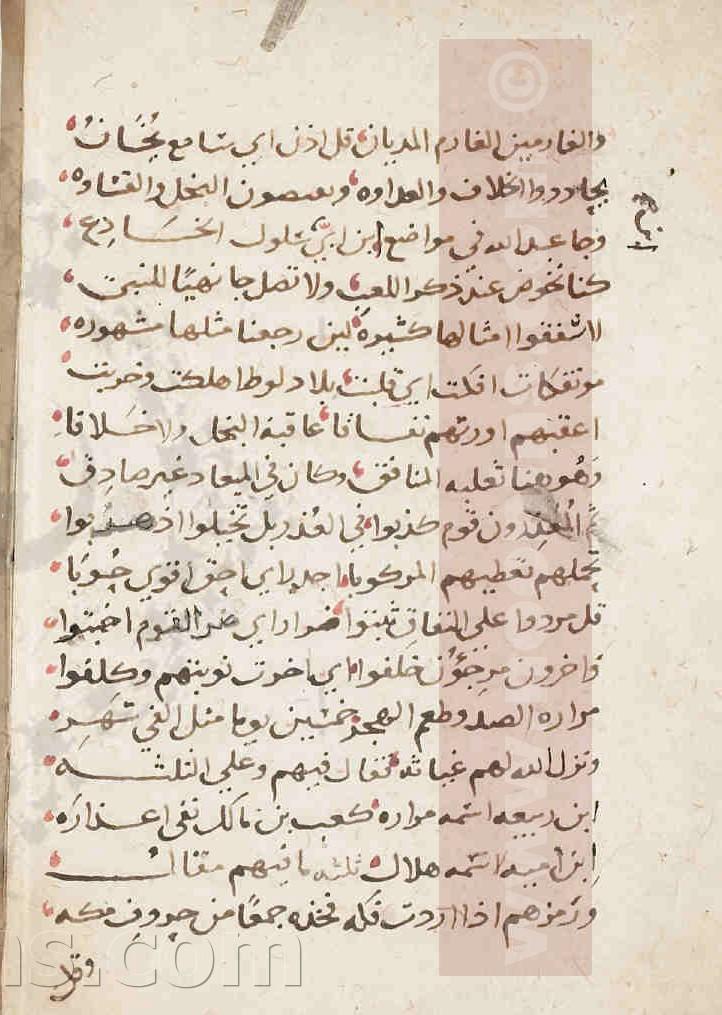 والغارمين الغارم المديان قل اذن اي سامع يخان
يحاددوا الخلاف والعداوه ويقبضون البخل والقساوه
وجا عبد الله في مواضع ابن ابي سلول الخادع
كنا نخوض عند ذكر اللعب ولا تصل جا نهيا للنبي
لا تنفقوا امثالها كثيره لين رجعنا مثلها مشهوره
موتفكات افكت اي قلبت بلاد لوط اهلكت وخربت
اعقبهم اورثهم نفاقا عاقبة البخل ولا خلاقا
وهو هنا ثعلبه المنافق وكان في الميعاد غير صادق
ثم المعذرون قوم كذبوا في العذر بل تخيلوا اذ
تحملهم تعطيهم المركوبا اجدر اي احق اقوي حوبا
قل مردوا علي النفاق ثبتوا ضرار اي ضر القوم اخبتوا
واخرون مرجؤن خلفوا اي اخرت توبتهم وكلفوا
مراره الصد وطعم الهجر خمسين يوما مثل الفي شهر
ونزل الله لهم غياثه فقال فيهم وعلي الثلثه
ابن ربيعه اسمه مراره كعب بن مالك نفي اعذاره
ابن اميه اسمه هلال ثلثه ما فيهم مقال
ورمزهم اذا اردت فكه فخذه جمعا من حروف مكه
وقل